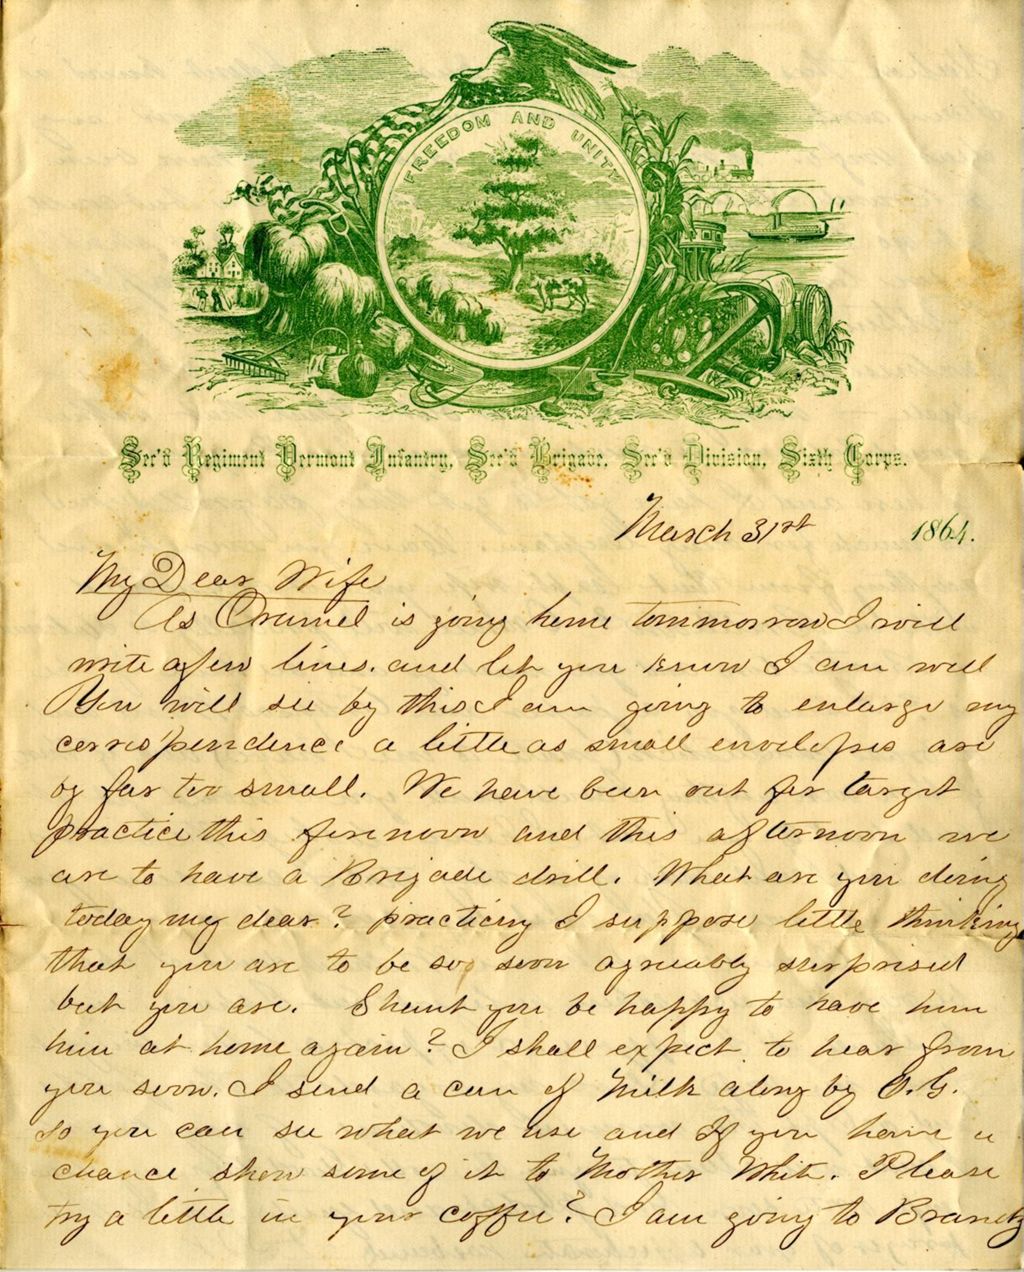 FREEDOM AND UNITY
Sec'd Regiment Vermont Infantry, Sec'd Brigade, Sec'd Division, Sixth Corps.
March 31st 1864.
My Dear Wife
As Oramel is going home tommorrow I will
write a few lines. and let you know I am well
You will see by this I am going to enlarge my
correspondence a little as small envelopes are
by far too small. We have been out for target
practice this forenoon and this afternoon we
are to have a Brigade drill. What are you doing
today my dear? practicing I suppose little thinking
that you are to be so soon agreeably surprised
but you are. Shant you be happy to have him
him at home again? I shall expect to hear from
you soon. I send a can of Milk along by O.G.
so you can see what we use and If you have a
chance show some of it to Mother White. Please
try a little in your coffee? I am going to Brandy